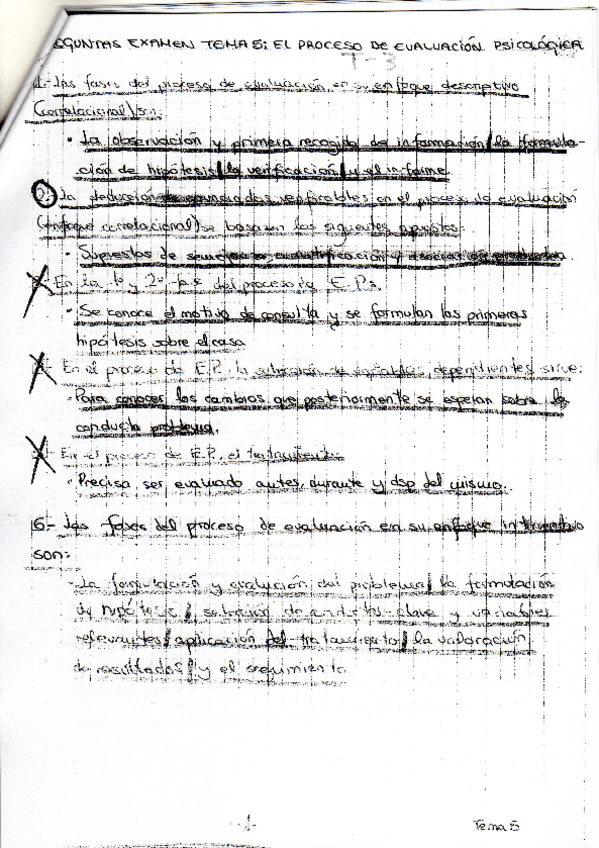 EGUNTAS EXAMEN TEMA 5: EL PROCESO DE EVALUACIÓN PSICOLÓGICA
T-3
1.- Las fases del proceso de evaluación en su enfoque descriptivo
Correlacional/son:
· La observación y primera recogida de información/ la formula-
ción de hipótesis/ la verificación/ y el informe
2.- La deducción de enunciados verificables en el proceso de evaluación
(enfoque correlacional) se basa en los siguientes
· Supuestos de cuantificación y
En la 1ª y 2ª fase del proceso de E.P.:
· Se conoce el motivo de consulta y se formulan las primeras
hipótesis sobre el caso
En el proceso de E.P. la selección de variables dependientes sirve:
· Para conocer los cambios que posteriormente se esperan sobre la
conducta problema.
En el proceso de E.P. el tratamiento:
· Precisa ser evaluado antes, durante y dsp del mismo.
6.- Las fases del proceso de evaluación en su enfoque
son:
· La formulación y evaluación del problema/ la formulación
de hipótesis/ selección de conductas-clave y variables
relevantes/ aplicación del tratamiento/ la valoración
de resultados/ y el seguimiento
-1-
Tema 5